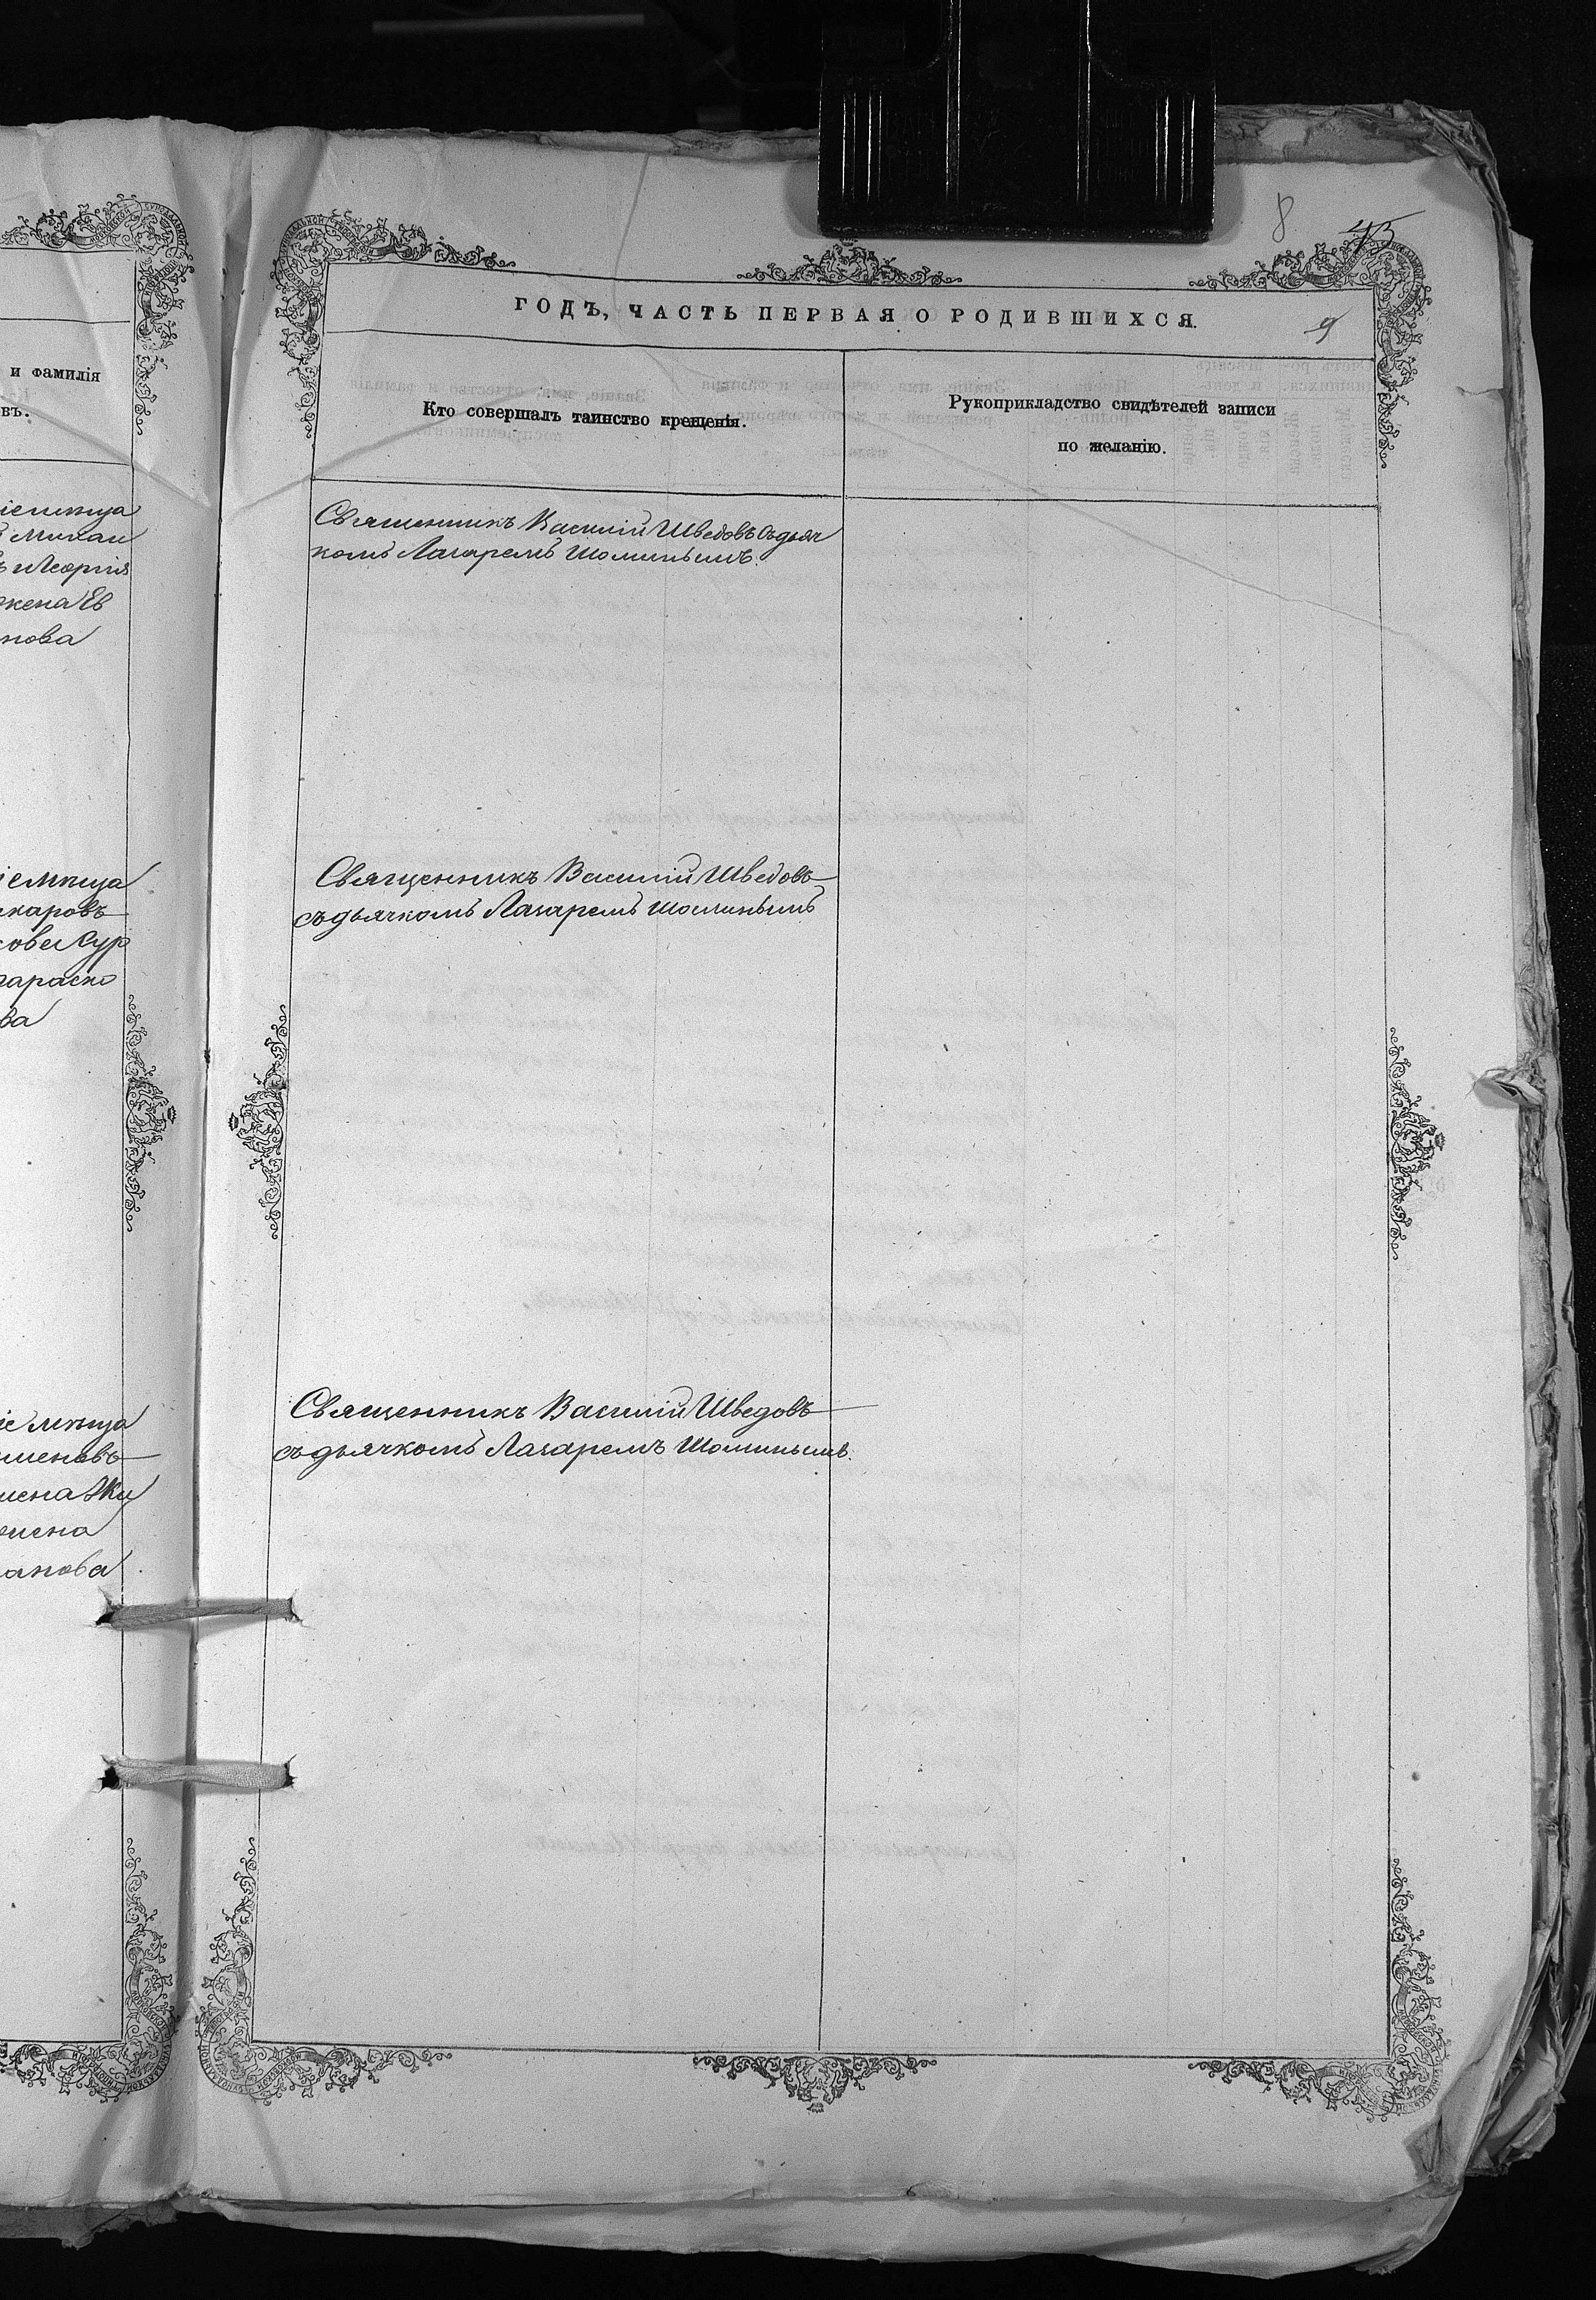 8
45
ГОДЪ, ЧАСТЬ ПЕРВАЯ О РОДИВШИХСЯ.
9
и фамилія
въ.
Кто совершалъ таинство крещенія.
Рукоприкладство свидѣтелей записи
по желанію.
Священникъ Василій Шведовъ съ дьяч
комъ Лазаремъ Шоминымъ.
жена Ев
нова
Священникъ Василій Шведовъ
съ дьячкомъ Лазаремъ Шоминымъ
каровъ
Священникъ Василій Шведовъ
съ дьячкомъ Лазаремъ Шоминымъ.
меновъ
анова